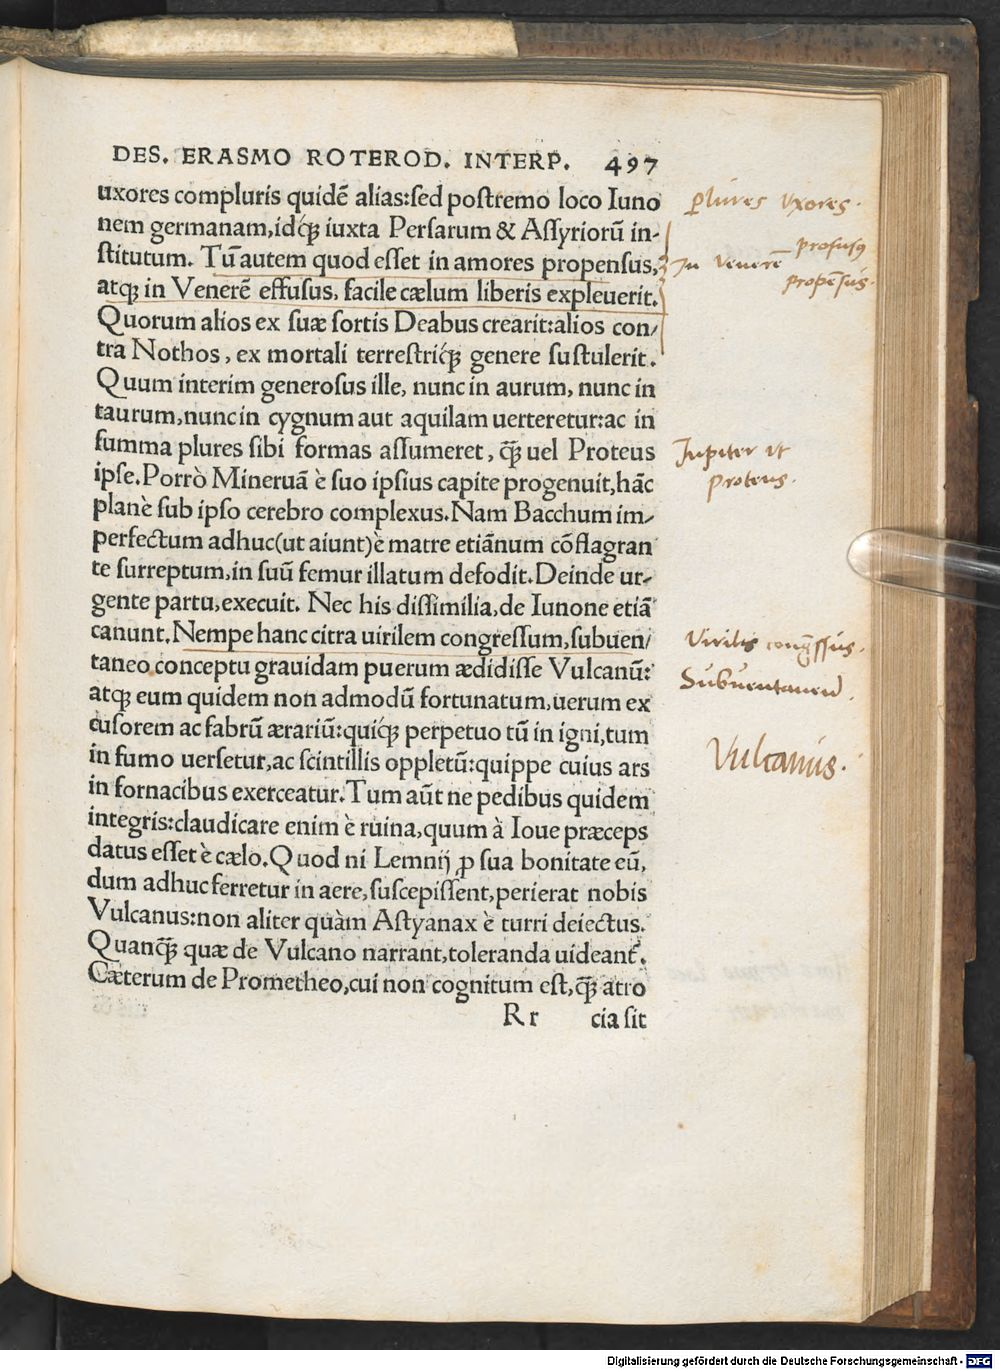 DES. ERASMO ROTEROD. INTERP. 497
uxores compluris quidē alias:sed postremo loco Iuno
nem germanam,idq́ꝫ iuxta Persarum & Assyriorū in-
stitutum. Tū autem quod esset in amores propensus,
atqꝫ in Venerē effusus, facile cælum liberis expleuerit.
Quorum alios ex suæ sortis Deabus crearit:alios con/
tra Nothos, ex mortali terrestriq́ꝫ genere sustulerit.
Quum interim generosus ille, nunc in aurum, nunc in
taurum,nunc in cygnum aut aquilam uerteretur:ac in
summa plures sibi formas assumeret, q̄ꝫ uel Proteus
ipse.Porrò Mineruā è suo ipsius capite progenuit,hāc
planè sub ipso cerebro complexus.Nam Bacchum im/
perfectum adhuc(ut aiunt)è matre etiānum cōflagran
te surreptum,in suū femur illatum defodit.Deinde ur-
gente partu,execuit. Nec his dissimilia,de Iunone etiā
canunt.Nempe hanc citra uirilem congressum,subuen/
taneo conceptu grauidam puerum ædidisse Vulcanū:
atqꝫ eum quidem non admodū fortunatum,uerum ex
cusorem ac fabrū ærariū:quiq́ꝫ perpetuo tū in igni,tum
in fumo uersetur,ac scintillis oppletū:quippe cuius ars
in fornacibus exerceatur.Tum aūt ne pedibus quidem
integris:claudicare enim è ruina,quum à Ioue præceps
datus esset è cælo.Quod ni Lemnij ꝓ sua bonitate eū,
dum adhuc ferretur in aere,suscepissent,perierat nobis
Vulcanus:non aliter quàm Astyanax è turri deiectus.
Quanq̄ꝫ quæ de Vulcano narrant,toleranda uideant̃.
Cæterum de Prometheo,cui non cognitum est,q̄ꝫ atro
Rr cia sit
ꝑlures vxores.
In venerē profusꝯ
propēsus.
Jupiter ut
Proteus.
Virilis congressus.
Vulcanus.
Digitalisierung gefördert durch die Deutsche Forschungsgemeinschaft - DFG